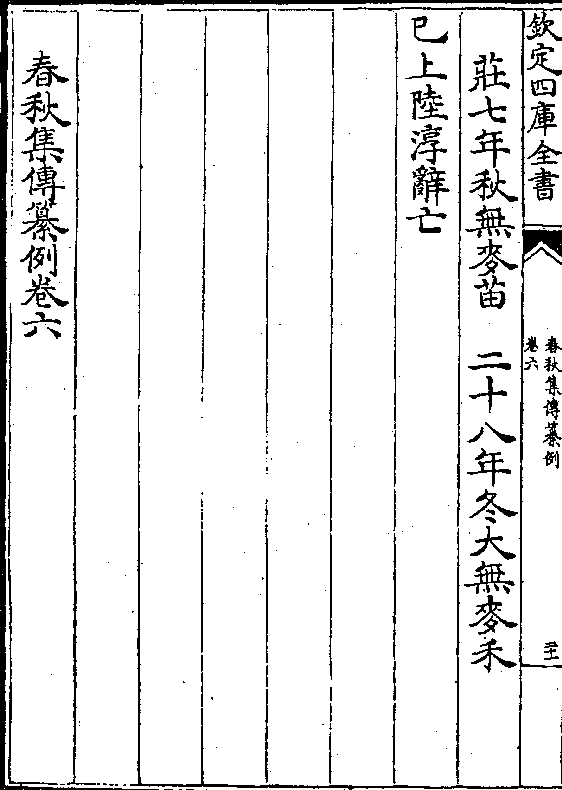 欽定四庫全書
春秋集傳纂例
卷六
莊七年秋無麥苗　二十八年冬大無麥禾
已上陸淳辭亡
春秋集傳纂例卷六